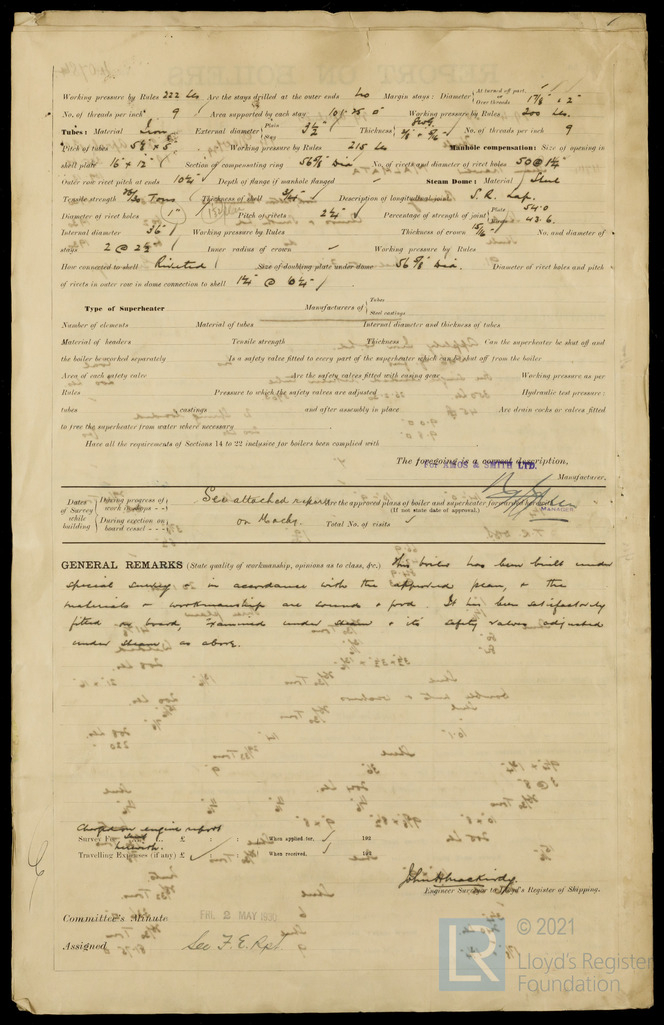 Working pressure by Rules 222 lbs Are the stays drilled at the outer ends No Margin stays: Diameter { At turned off part, or Over threads 1 7/8" 2"
No. of threads per inch 9 Area supported by each stay Working pressure by Rules 200 lbs.
Tubes: Material Iron External diameter { Plain Stay 3 1/2" Thickness { No. of threads per inch 9
Pitch of tubes Working pressure by Rules 215 lbs Manhole compensation: Size of opening in
shell plate 16" x 12" Section of compensating ring No. of rivets and diameter of rivet holes 50 @ 1 1/4"
Outer row rivet pitch at ends 10 1/4" Depth of flange if manhole flanged Steam Dome: Material Steel
Tensile strength Tons Thickness of shell Description of longitudinal joint S. R. Lap.
Diameter of rivet holes 1" Pitch of rivets 2 1/4" Percentage of strength of joint { Plate 54.0 Rivets 43.6.
Internal diameter 36" Working pressure by Rules Thickness of crown 15/16" No. and diameter of
stays 2 @ 2 1/2" Inner radius of crown Working pressure by Rules
How connected to shell Riveted Size of doubling plate under dome 56 5/8" Dia. Diameter of rivet holes and pitch
of rivets in outer row in dome connection to shell 1 1/4" @ 6 1/4"
Type of Superheater Manufacturers of { Tubes Steel castings
Number of elements Material of tubes Internal diameter and thickness of tubes
Material of headers Tensile strength Thickness Can the superheater be shut off and
the boiler be worked separately Is a safety valve fitted to every part of the superheater which can be shut off from the boiler
Area of each safety valve Are the safety valves fitted with easing gear Working pressure as per
Rules Pressure to which the safety valves are adjusted Hydraulic test pressure:
tubes castings and after assembly in place Are drain cocks or valves fitted
to free the superheater from water where necessary
Have all the requirements of Sections 14 to 22 inclusive for boilers been complied with
The foregoing is a correct description,
For AMOS & SMITH LTD.
Manufacturer.
MANAGER
Dates of Survey while building { During progress of work in shops - - See attached report Are the approved plans of boiler and superheater forwarded herewith
(If not state date of approval.)
During erection on board vessel - - - on Machy. Total No. of visits
GENERAL REMARKS (State quality of workmanship, opinions as to class, &c.) This boiler has been built under
special survey & in accordance with the approved plan, & the
materials & workmanship are sound & good. It has been satisfactorily
fitted on board, examined under steam & its safety valves adjusted
under steam as above.
Charged on engine report
Survey Fee £ : : When applied for, 192
herewith.
Travelling Expenses (if any) £ : : When received, 192
Engineer Surveyor to Lloyd's Register of Shipping.
Committee's Minute FRI. 2 MAY 1930
Assigned See F. E. Rpt.
LR © 2021
Lloyd's Register
Foundation